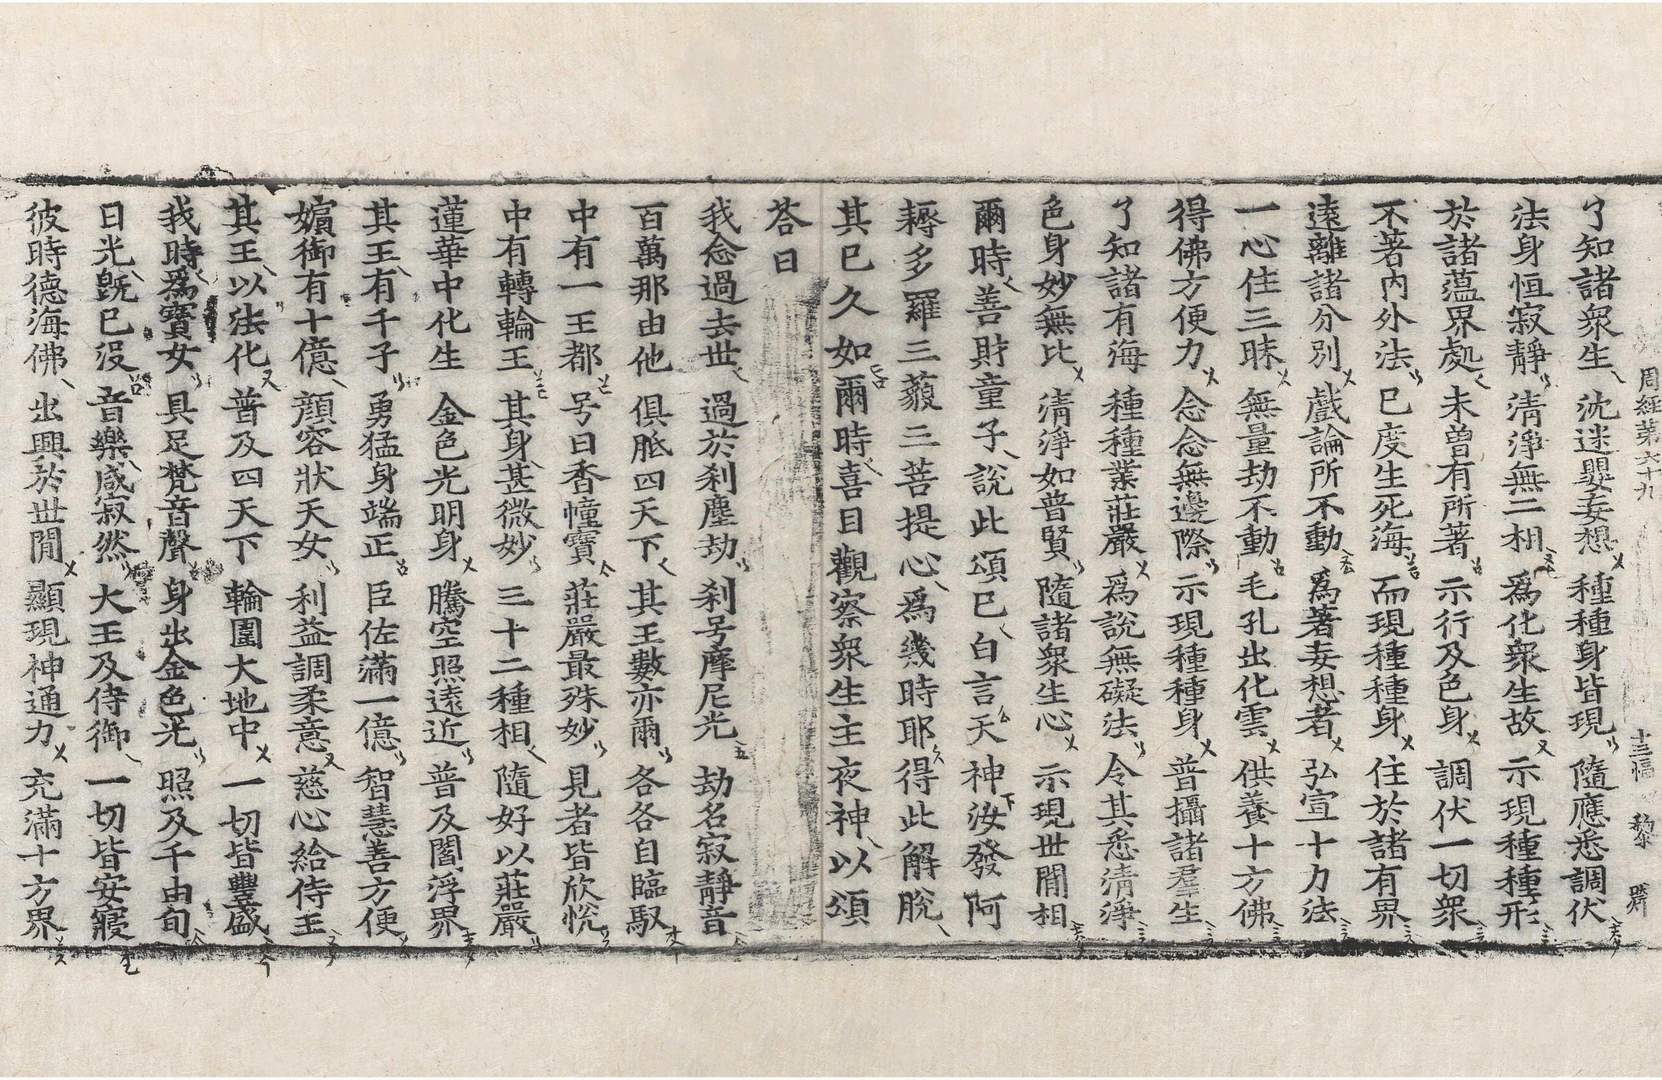 周經第六十九 十三幅 黎
了知諸衆生 沈迷嬰妄想 種種身皆現 隨應悉調伏
法身恒寂靜 清淨無二相 爲化衆生故 示現種種形
於諸蘊界處 未曾有所著 示行及色身 調伏一切衆
不著內外法 已度生死海 而現種種身 住於諸有界
遠離諸分別 戲論所不動 爲著妄想者 弘宣十力法
一心住三昧 無量劫不動 毛孔出化雲 供養十方佛
得佛方便力 念念無邊際 示現種種身 普攝諸羣生
了知諸有海 種種業莊嚴 爲說無礙法 令其悉清淨
色身妙無比 清淨如普賢 隨諸衆生心 示現世間相
爾時善財童子說此頌已白言天神汝發阿
耨多羅三藐三菩提心爲幾時耶得此解脫
其已久如爾時喜目觀察衆生主夜神以頌
荅曰
我念過去世 過於刹塵劫 刹号摩尼光 劫名寂靜音
百萬那由他 俱胝四天下 其王數亦爾 各各自臨馭
中有一王都 号曰香幢寶 莊嚴最殊妙 見者皆欣悅
中有轉輪王 其身甚微妙 三十二種相 隨好以莊嚴
蓮華中化生 金色光明身 騰空照遠近 普及閻浮界
其王有千子 勇猛身端正 臣佐滿一億 智慧善方便
嬪御有十億 顔容狀天女 利益調柔意 慈心給侍王
其王以法化 普及四天下 輪圍大地中 一切皆豐盛
我時爲寶女 具足梵音聲 身出金色光 照及千由旬
日光旣已沒 音樂咸寂然 大王及侍御 一切皆安寢
彼時德海佛 出興於世間 顯現神通力 充滿十方界